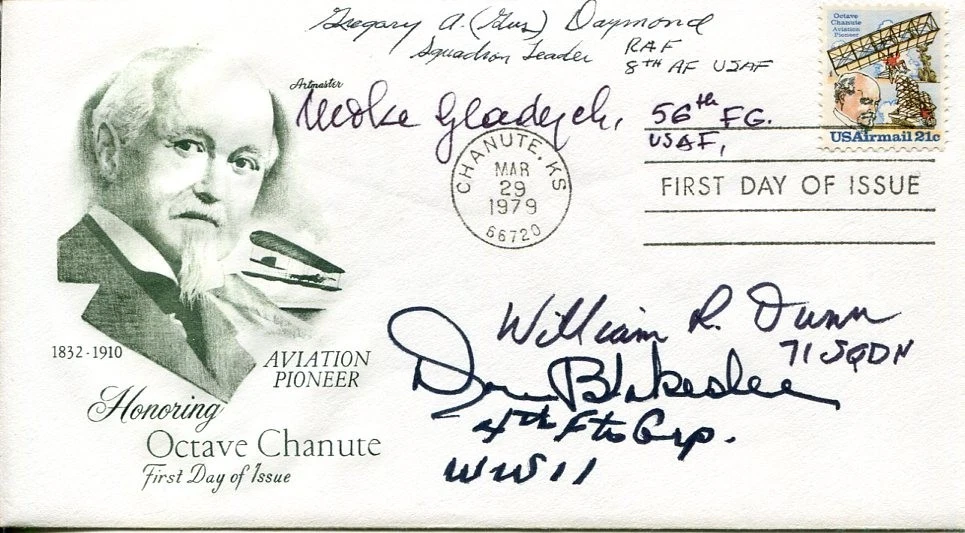 Gregory A. (Gus) Daymond
Squadron Leader RAF
8TH AF USAF
Artmaster
Mike Gladych, 56th FG.
USAF,
Octave
Chanute
Aviation
Pioneer
USAirmail 21c
CHANUTE, KS
MAR
29
1979
66720
FIRST DAY OF ISSUE
William R. Dunn
71 SQDN
Don Blakeslee
4th Ftr Grp.
WW11
1832-1910
AVIATION
PIONEER
Honoring
Octave Chanute
First Day of Issue